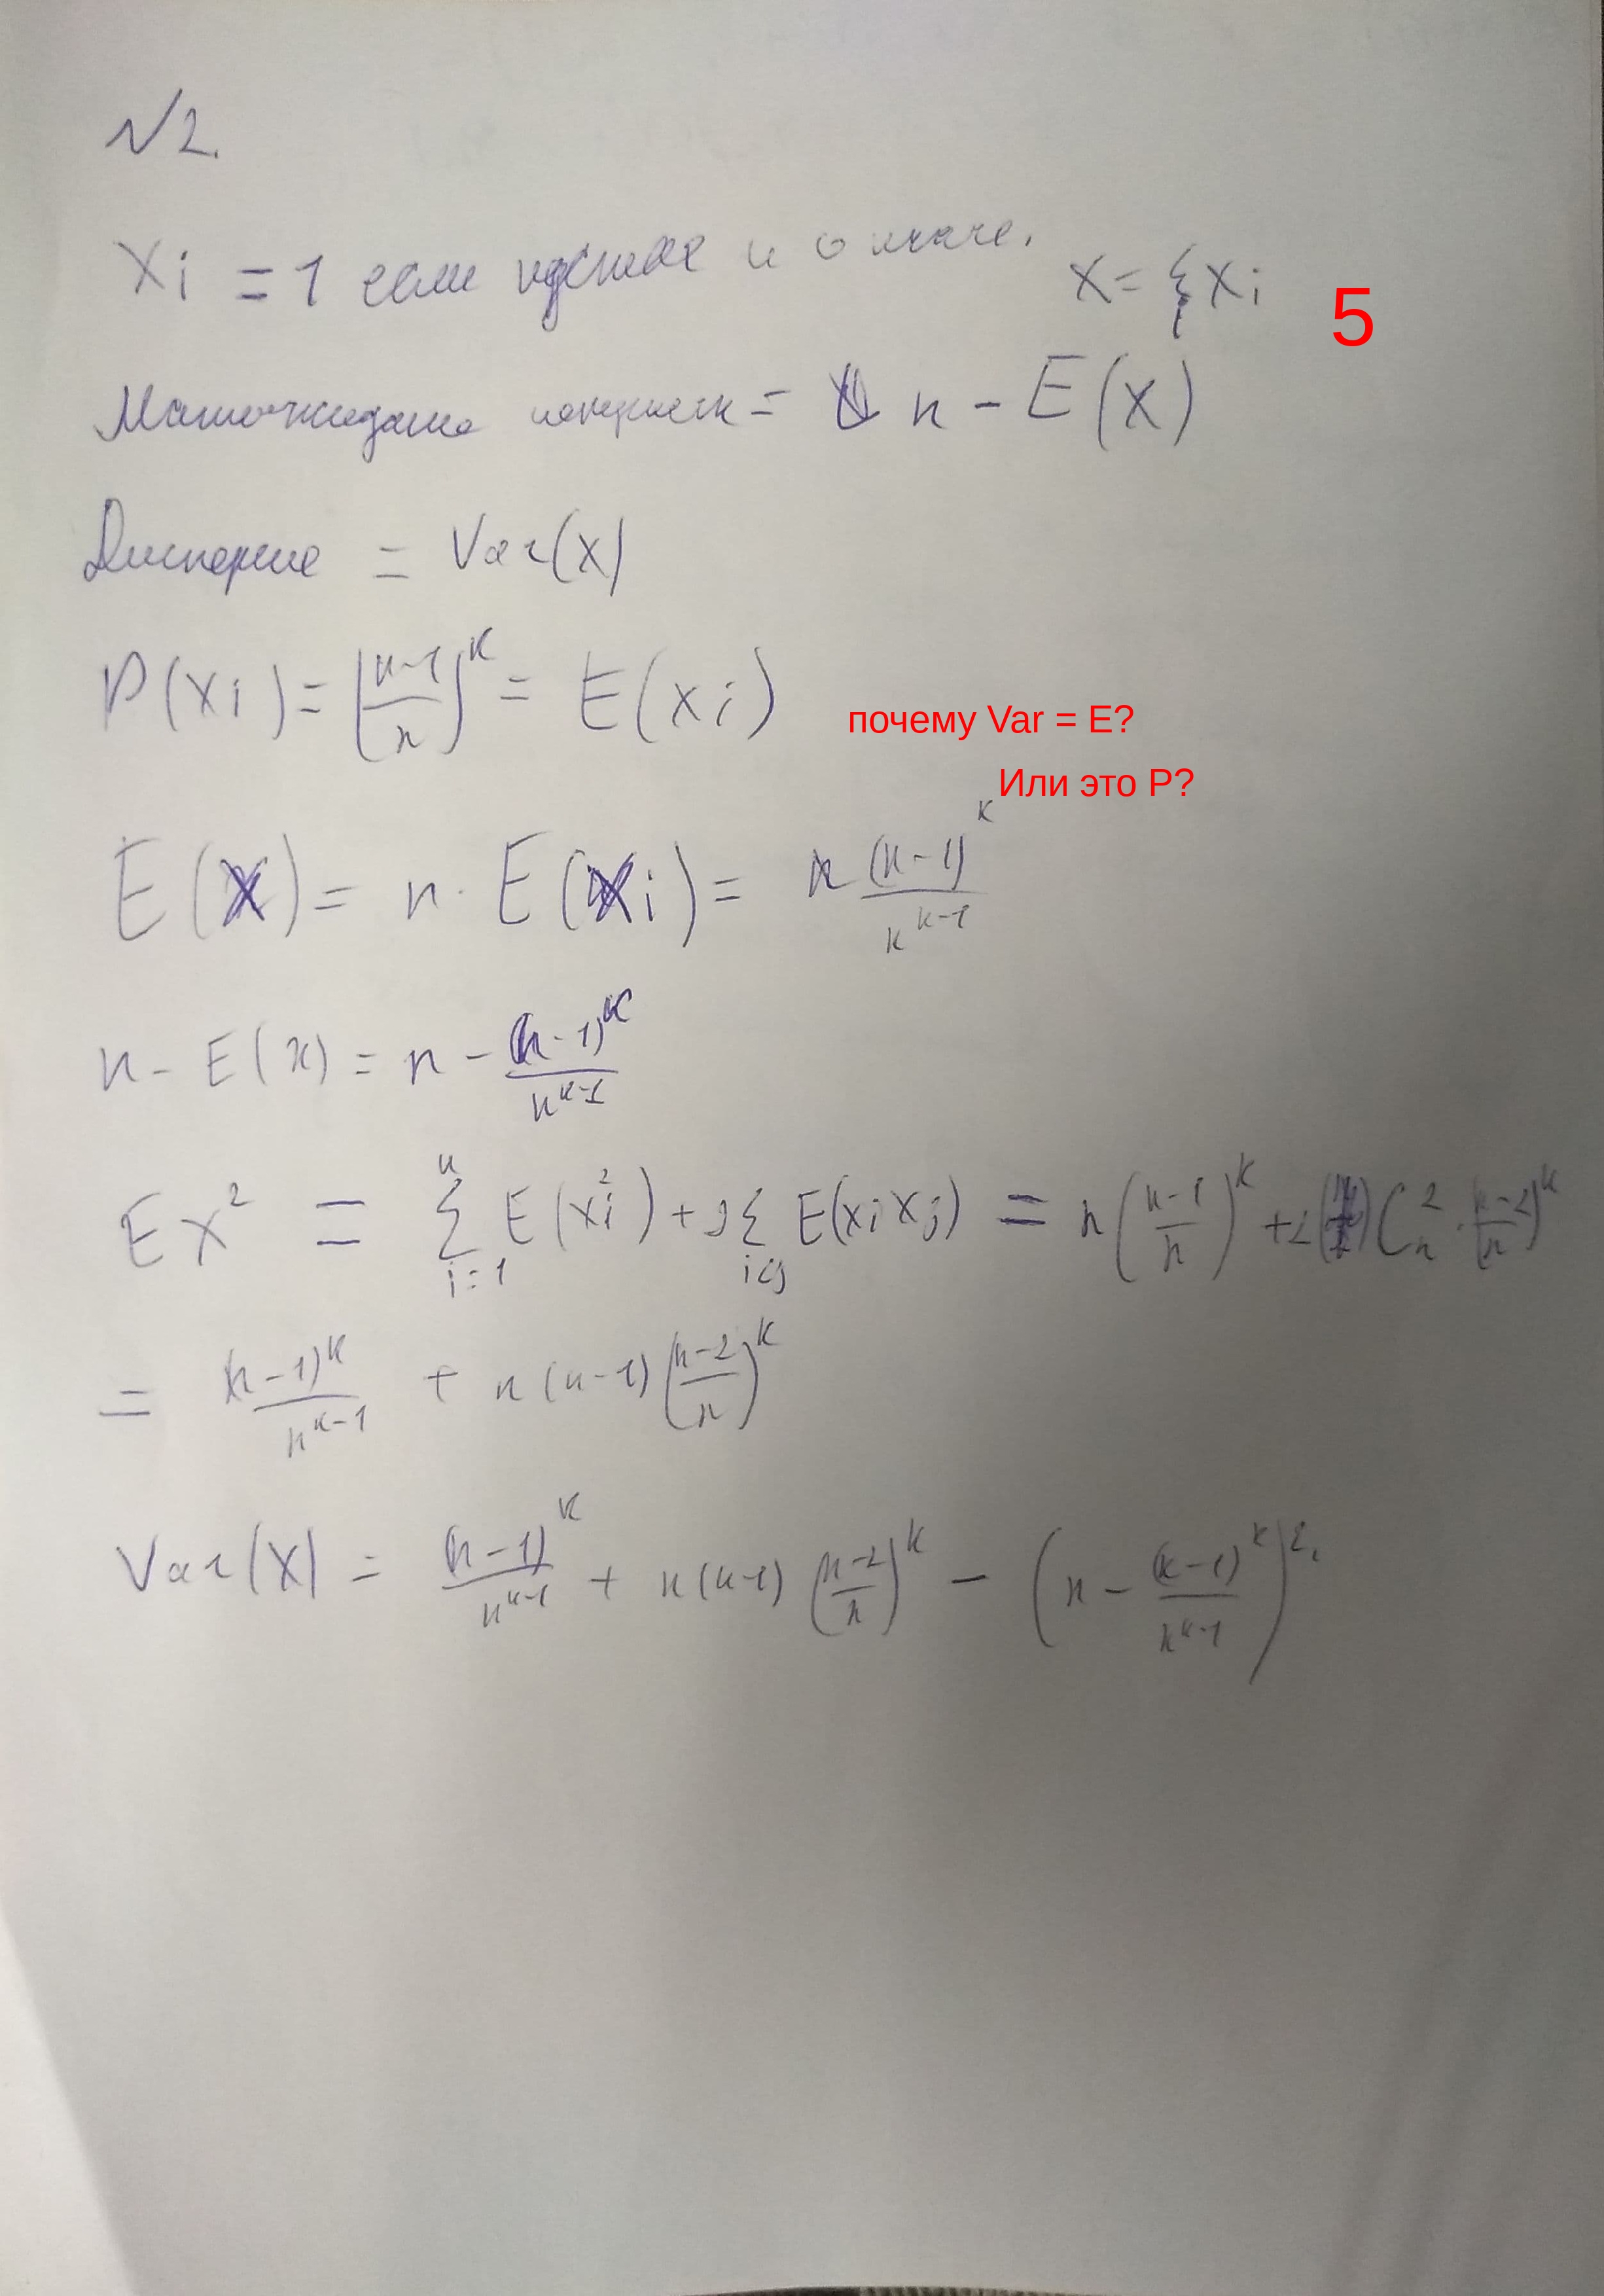 №2.
Xi = 1 если пустое и 0 иначе. X = Σ Xi
i
5
Матожидание непустых = n - E(X)
Дисперсия = Var(X)
P(Xi) = ((n-1)/n)^k = E(Xi)
почему Var = E?
Или это P?
E(X) = n · E(Xi) = (n-1)^k / n^(k-1)
n - E(X) = n - (n-1)^k / n^(k-1)
EX² = Σ_(i=1)^n E(Xi²) + 2Σ_(i<j) E(XiXj) = n((n-1)/n)^k + 2 C_n^2 · ((n-2)/n)^k
= (n-1)^k / n^(k-1) + n(n-1)((n-2)/n)^k
Var(X) = (n-1)^k / n^(k-1) + n(n-1)((n-2)/n)^k - (n - (n-1)^k / n^(k-1))².